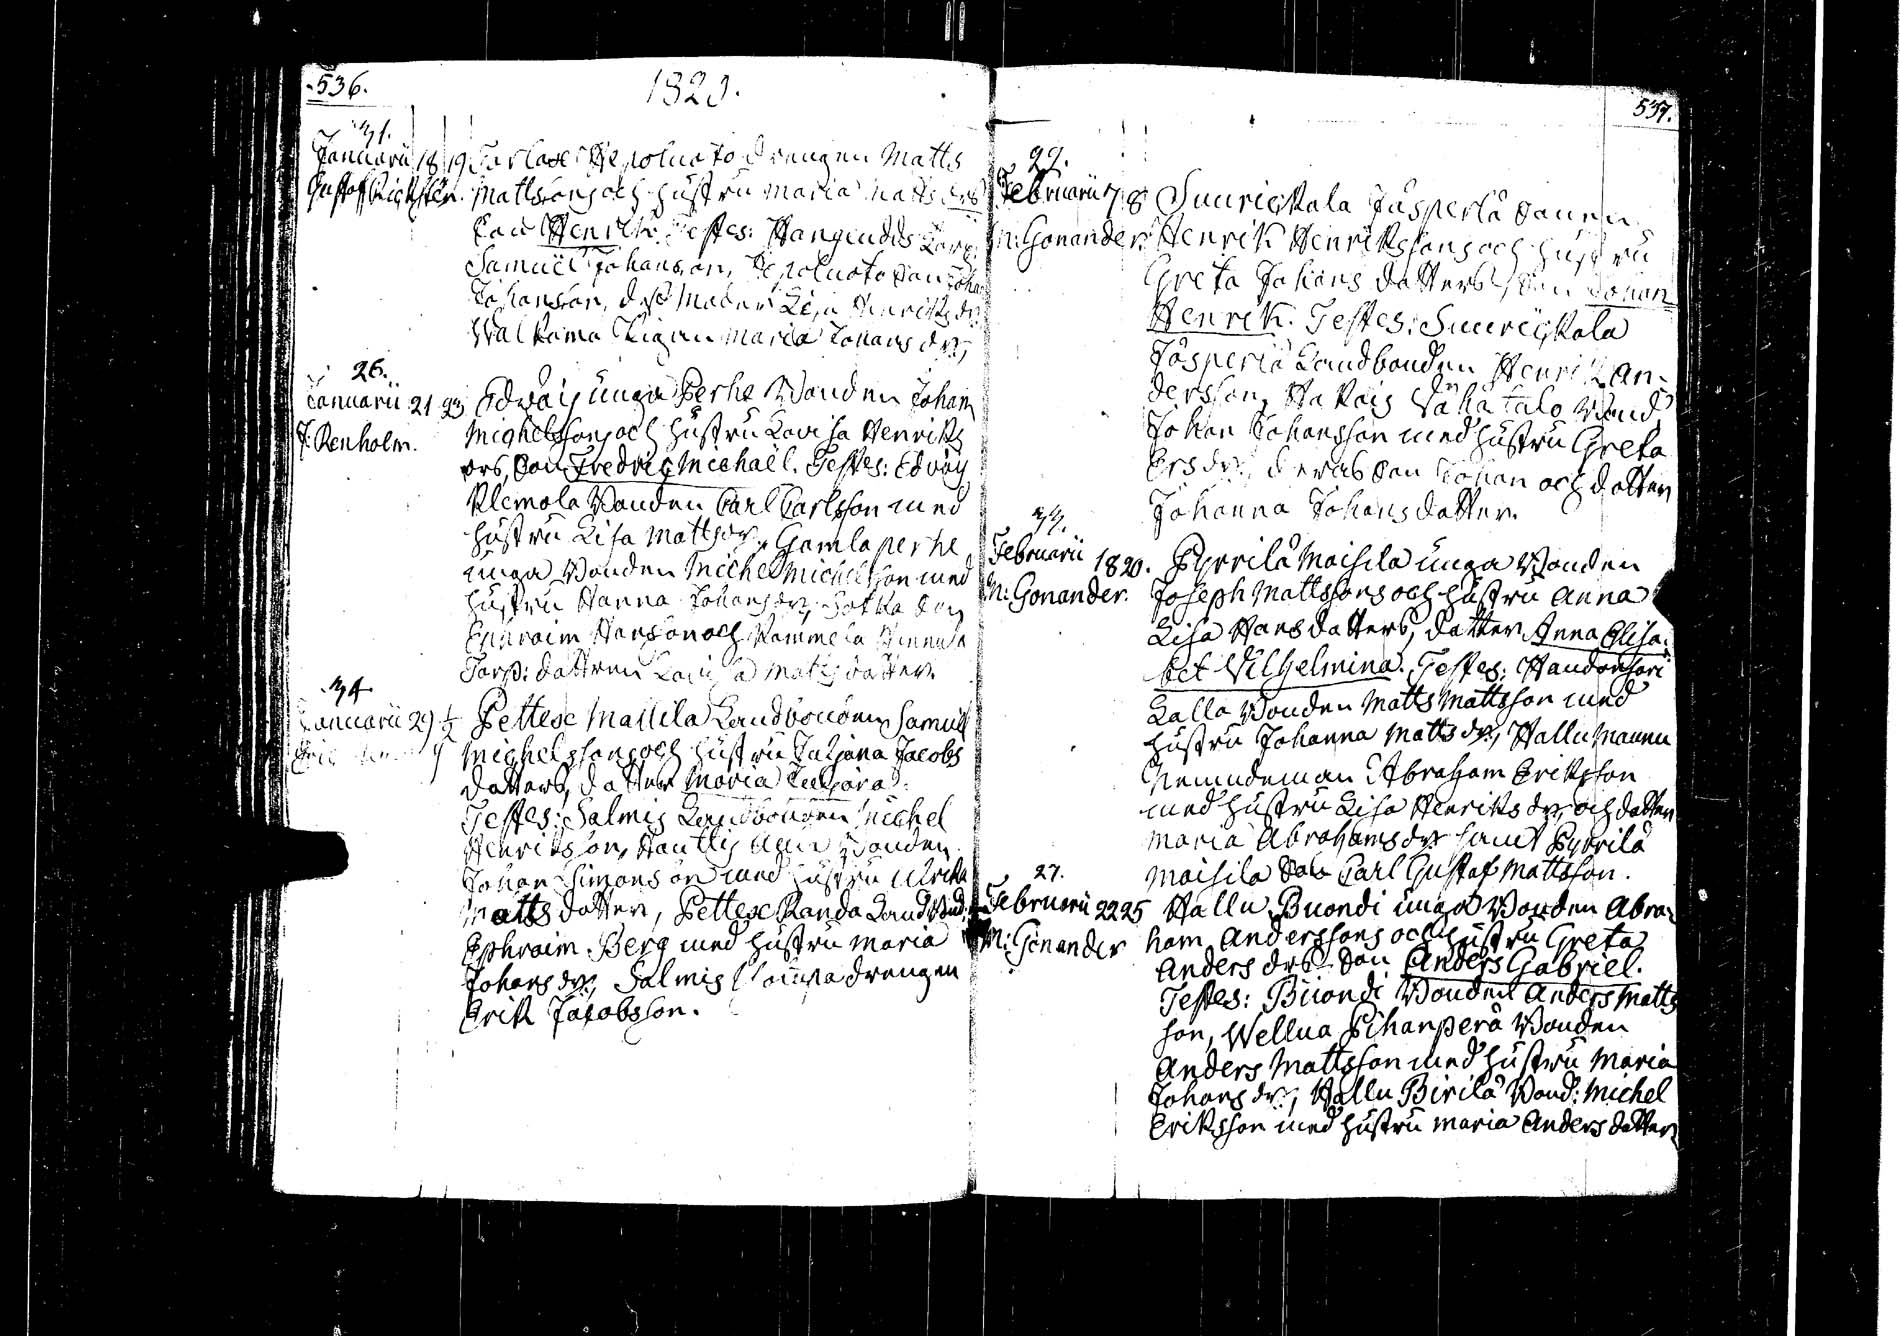 536.
1820.
31.
Januarii 18 19 Torlax Hepoluoto drengen Matts
Gustaf Rickstén. Mattssons och hustru Maria Matts drs
son Henrik. Testes: Hangindes Torp:
Samuel Johansson, Hepoluoto son Johan
Johansson, dess Moder Lisa Henriks dr,
Walkama Pigan Maria Johans dr,
26.
Januarii 21 23 Edwaij unga Perhe Bonden Johan
J: Renholm. Michelssons och hustru Lovisa Henriks
drs, son Fredric Michaël. Testes: Edväij
Klemola Bonden Carl Carlsson med
hustru Lisa Matts dr, Gamla perhe
unga Bonden Michel Michelsson med
hustru Hanna Johans dr, Sotka son
Ephraim Hansson och
Torp: dattren Lovisa Matts datter.
34.
Januarii 29 1/2 Pettese Mattila Landbonden Samuel
Michelssons och hustru Tatjana Jacobs
datters, datter Maria
Testes: Salmis Landbonden Michel
Henriksson, Bonden
Johan Simonsson med hustru Ulrika
Matts datter, Pettese Randa Landbond:
Ephraim Berg med hustru Maria
Johans dr, Salmis drengen
Erik Jacobsson.
537.
22.
Februarii 7 8 Junriskala Jåsperlä sonen
N: Gonander. Henrik Henrikssons och hustru
Greta Johans datters, son Johan
Henrik. Testes: Junriskala
Jåsperlä Landbonden Henrik An-
dersson, Wähä talo Bond:
Johan Johansson med hustru Greta
Ers dr, deras son Johan och datter
Johanna Johans datter.
Februarii 18 20. Pyrrilä Maisila unga Bonden
N: Gonander. Joseph Mattssons och hustru Anna
Lisa Hans datters, datter Anna Elisa-
bet Vilhelmina. Testes:
Kalla Bonden Matts Mattsson med
hustru Johanna Matts dr, Hallu Mannu
Nemndeman Abraham Eriksson
med hustru Lisa Henriks dr, och datter
Maria Abrahams dr samt Pyrrilä
Maisila son Carl Gustaf Mattsson.
27.
Februarii 22 25 Hallu Buondi unga Bonden Abra-
N: Gonander ham Anderssons och hustru Greta
Anders drs son Anders Gabriel.
Testes: Buondi Bonden Anders Matts
son, Wellua Pihanperä Bonden
Anders Mattsson med hustru Maria
Johans dr, Hallu Birilä Bond: Michel
Eriksson med hustru Maria Anders datter